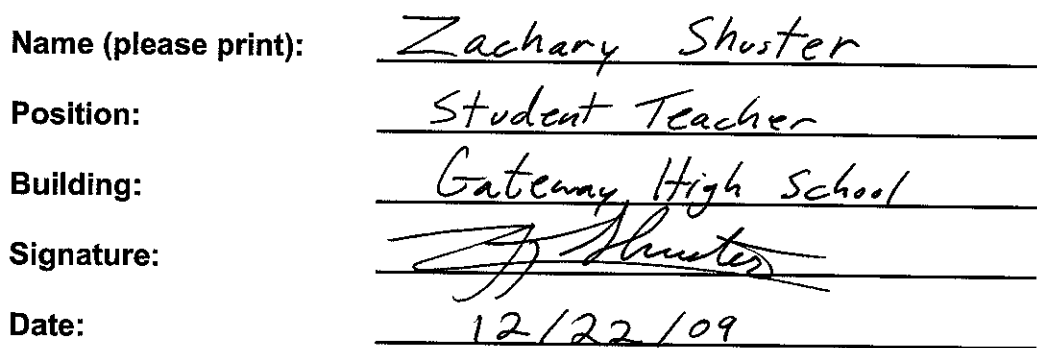 Name (please print): Zachary Shuster
Position: Student Teacher
Building: Gateway High School
Signature: Shuster
Date: 12/22/09